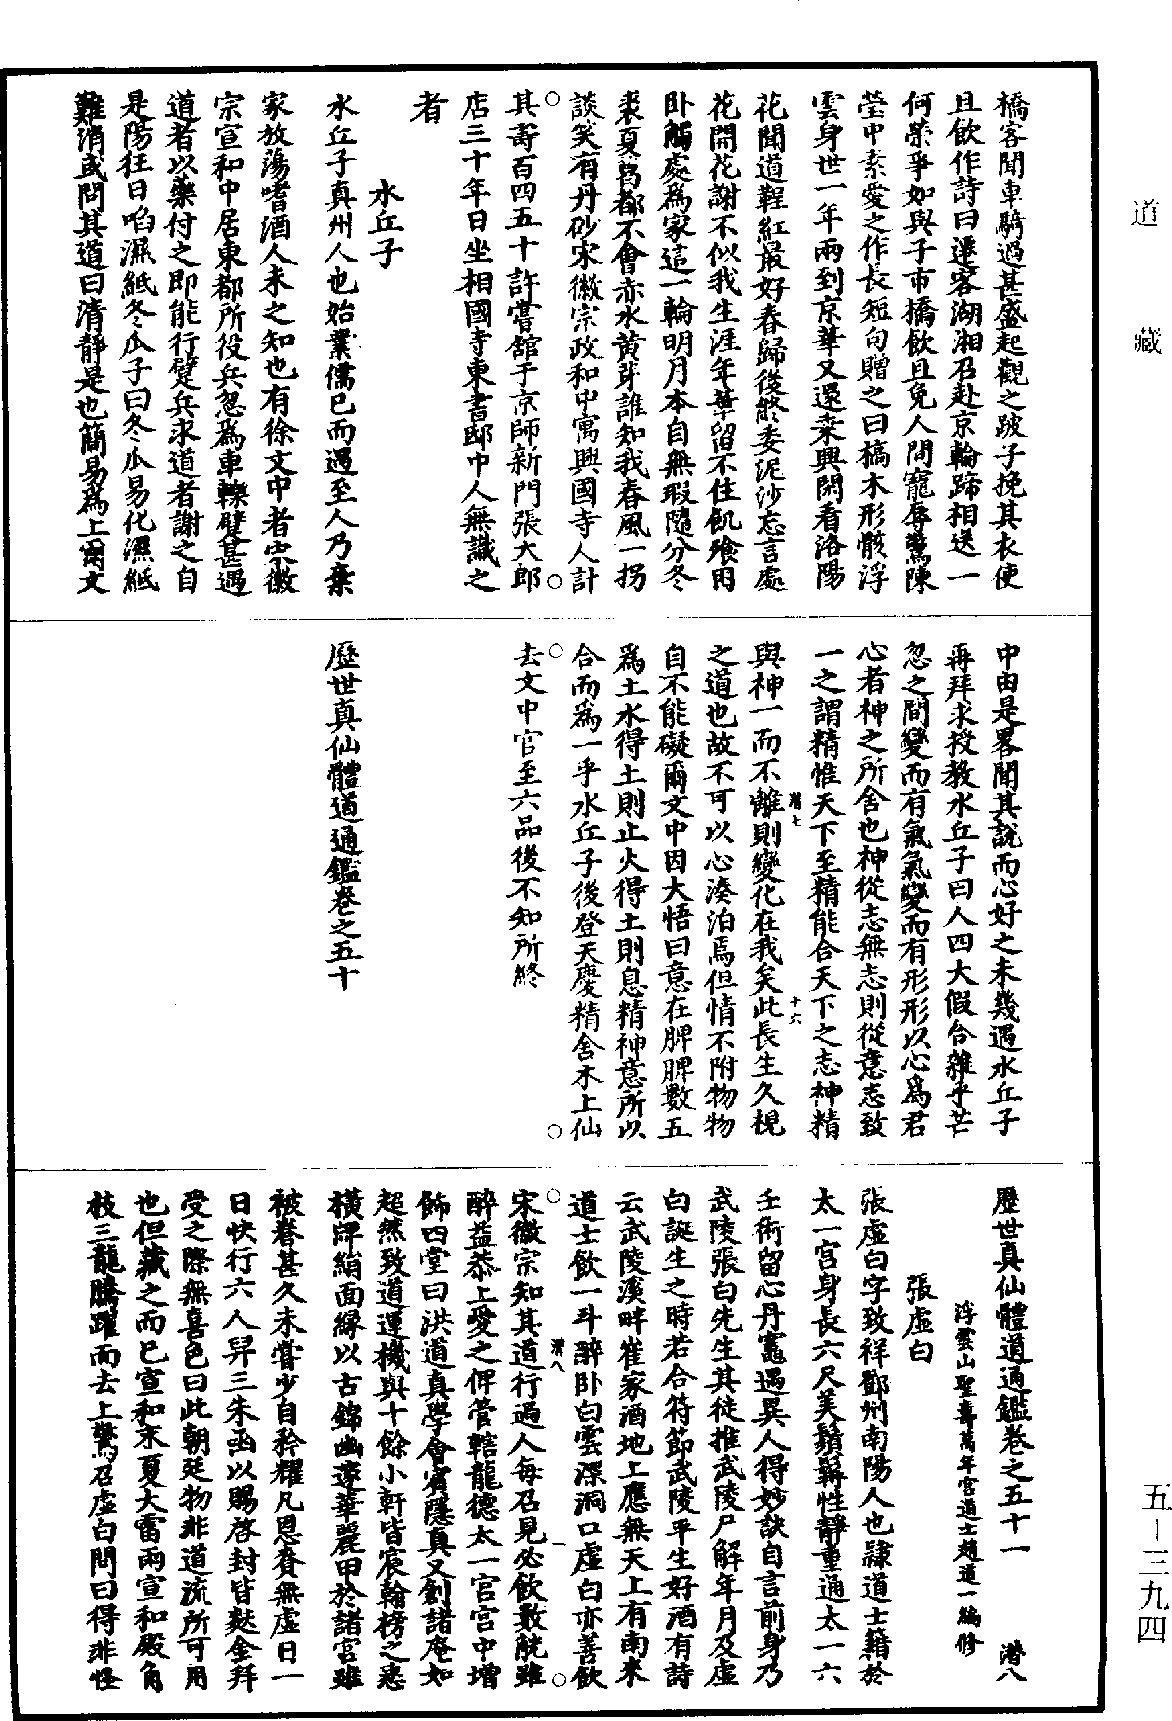 道藏
橋客聞車騎過甚盛起觀之跛子挽其衣使
且飲作詩曰遷客湖湘召赴京輪蹄相送一
何榮爭如與子市橋飲且免人間寵辱驚陳
瑩中素愛之作長短句贈之曰槁木形骸浮
雲身世一年兩到京華又還乘興閑看洛陽
花聞道鞓紅最好春歸後終委泥沙忘言處
花開花謝不似我生涯年華留不住飢飡困
卧觸處爲家這一輪明月本自無瑕隨分冬
裘夏葛都不會赤水黃芽誰知我春風一拐
談笑有丹砂宋徽宗政和中寓興國寺人計
其壽百四五十許嘗舘于京師新門張大郎
店三十年日坐相國寺東書邸中人無識之
者
水丘子
水丘子真州人也始業儒已而遇至人乃棄
家放蕩嗜酒人未之知也有徐文中者宋徽
宗宣和中居東都所役兵忽爲車轢躄甚遇
道者以藥付之即能行躄兵求道者謝之自
是陽狂日啗濕紙冬瓜子曰冬瓜易化濕紙
難消或問其道曰清靜是也簡易爲上爾文
中由是畧聞其說而心好之未幾遇水丘子
再拜求授教水丘子曰人四大假合雜乎芒
忽之間變而有氣氣變而有形形以心爲君
心者神之所舍也神從志無志則從意志致
一之謂精惟天下至精能合天下之志神精
與神一而不離則變化在我矣此長生久視
之道也故不可以心湊泊焉但情不附物物
自不能礙爾文中因大悟曰意在脾脾數五
爲土水得土則止火得土則息精神意所以
合而爲一乎水丘子後登天慶精舍木上仙
去文中官至六品後不知所終
潛七
十六
歷世真仙體道通鑑卷之五十
歷世真仙體道通鑑卷之五十一 潛八
浮雲山聖壽萬年宮道士趙道一編修
張虛白
張虛白字致祥鄧州南陽人也隸道士籍於
太一宮身長六尺美鬚髯性靜重通太一六
壬術留心丹竈遇異人得妙訣自言前身乃
武陵張白先生其徒推武陵尸解年月及虛
白誕生之時若合符節武陵平生好酒有詩
云武陵溪畔崔家酒地上應無天上有南來
道士飲一斗醉卧白雲深洞口虛白亦善飲
宋徽宗知其道行過人每召見必飲數觥雖
醉益恭上愛之俾管轄龍德太一宮宮中增
飾四堂曰洪道真學會賓隱真又創諸庵如
超然致道運機與十餘小軒皆宸翰榜之悉
橫牌絹面緣以古錦幽邃華麗甲於諸宮雖
被眷甚久未嘗少自矜耀凡恩賚無虛日一
日快行六人舁三朱函以賜啓封皆麩金拜
受之際無喜色曰此朝廷物非道流所可用
也但藏之而已宣和末夏大雷雨宣和殿角
枝三龍騰躍而去上驚召虛白問曰得非怪
潛八
一
五—三九四